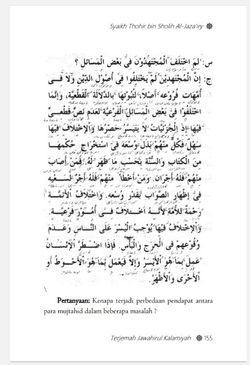 Syaikh Thohir bin Sholih Al-Jaza'iry
س: لِمَ اخْتَلَفَ الْمُجْتَهِدُوْنَ فِى بَعْضِ الْمَسَائِلِ ؟
ج: إِنَّ الْمُجْتَهِدِيْنَ لَمْ يَخْتَلِفُوْا فِى أُصُوْلِ الدِّيْنِ وَلَا فِى
أُمَّهَاتِ فُرُوْعِهِ أَصْلًا، لِثُبُوْتِهَا بِالدَّلَالَةِ الْقَطْعِيَّةِ، وَإِنَّمَا
اخْتَلَفُوْا فِى بَعْضِ الْمَسَائِلِ الْفَرْعِيَّةِ لِعَدَمِ نَصٍّ قَطْعِيٍّ
فِيْهَا إِذِ الْجُزْئِيَّاتُ لَا يَتَيَسَّرُ حَصْرُهَا وَالْإِخْتِلَافُ فِيْهَا
سَهْلٌ فَكُلٌّ مِنْهُمْ بَذَلَ الْجُهْدَ فِى اسْتِخْرَاجِ حُكْمِهَا
مِنَ الْكِتَابِ وَالسُّنَّةِ بِحَسَبِ مَا ظَهَرَ لَهُ، فَمَنْ أَصَابَ
مِنْهُمْ فَلَهُ أَجْرَانِ وَمَنْ أَخْطَأَ مِنْهُمْ فَلَهُ أَجْرٌ لِسَعْيِهِ
فِى إِظْهَارِ الصَّوَابِ بِقَدْرِ وُسْعِهِ. وَاخْتِلَافُ الْأَئِمَّةِ
رَحْمَةٌ لِلْأُمَّةِ لِأَنَّهُ اخْتِلَافٌ فِى أُمُوْرٍ فَرْعِيَّةٍ.
وَالْإِخْتِلَافُ فِيْهَا يُوْجِبُ الْيُسْرَ عَلَى النَّاسِ وَعَدَمَ
وُقُوْعِهِمْ فِى الْحَرَجِ وَالْبَأْسِ. فَإِذَا اضْطُرَّ الْإِنْسَانُ
عَمِلَ بِمَا هُوَ الْأَيْسَرُ وَإِلَّا فَيَعْمَلُ بِمَا هُوَ الْأَحْوَطُ أَوِ
الْأَحْرَى وَالْأَظْهَرُ
Pertanyaan: Kenapa terjadi perbedaan pendapat antara
para mujtahid dalam beberapa masalah ?
Terjemah Jawahirul Kalamiyah 155